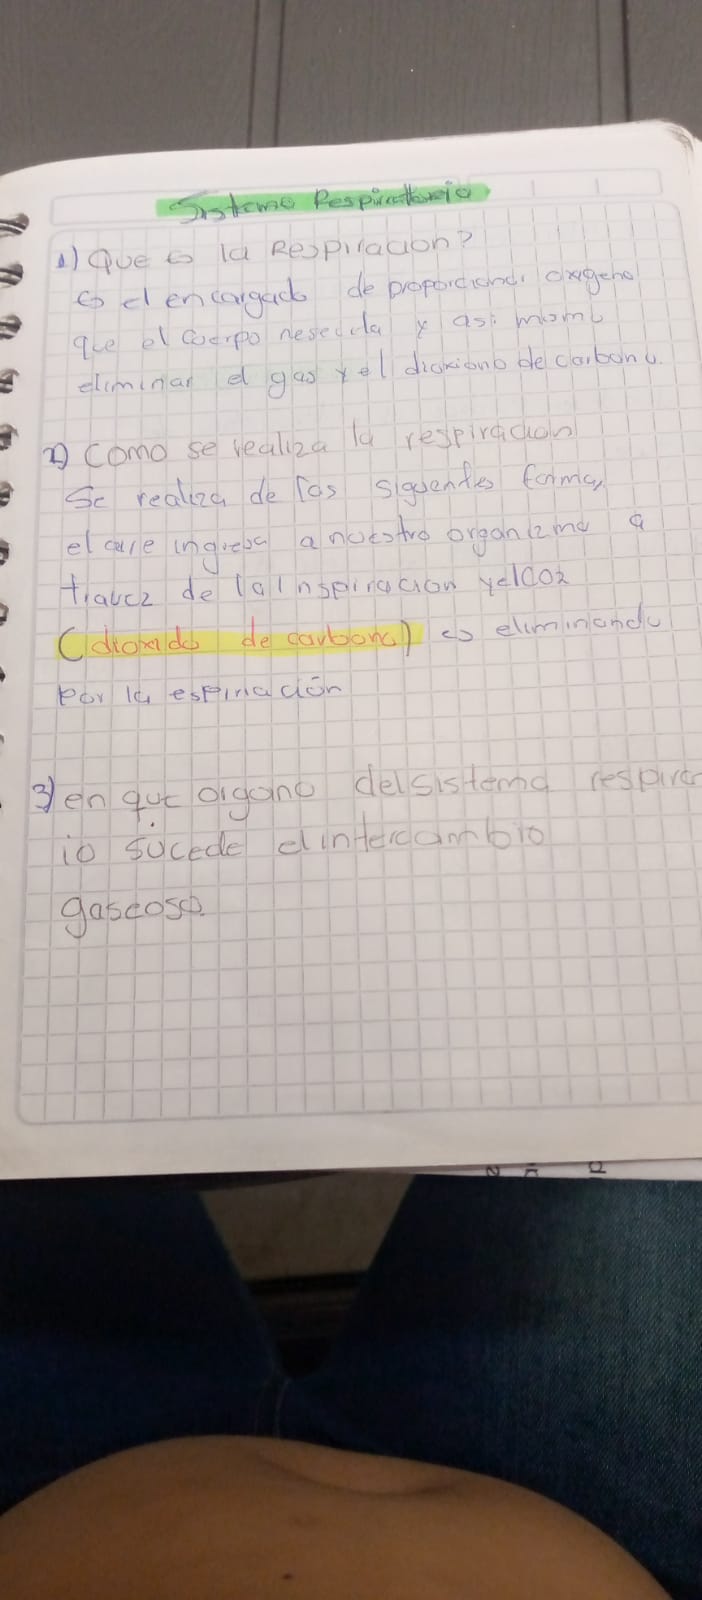 Sistema Respiratorio
1) Que es la Respiracion?
es el encargado de proporcionar oxigeno
que el cuerpo nesecita y asi mismo
eliminar el gas y el dioxiono de carbono.
2) Como se realiza la respiracion
Se realiza de las siguentes forma,
el aire ingresa a nuestro organizmo a
travez de la Inspiracion y el CO2
(dioxido de carbono) es eliminando
por la espiriación
3) en que organo del sistema respirar
io sucede el intercambio
gaseoso.